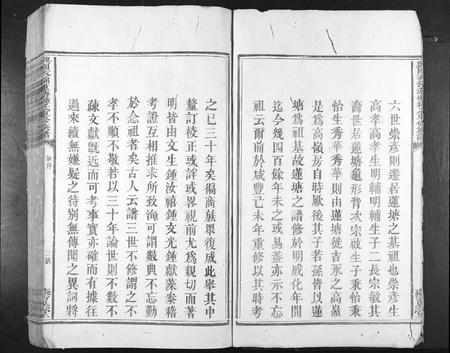 六世崇彥則遷居蓮塘之基祖也崇彥生
高孝高孝生明輔明輔生子二長宗敏其
裔世居蓮塘龜形背次宗啟生子秉怡秉
怡生秀華秀華則由蓮塘徙吉永之高嶺
是為高嶺房自時厥後其子若孫皆以蓮
塘為祖基故蓮塘之譜修於明成化年間
迄今幾四百餘年未之或易蓋亦示不忘
祖云爾前於咸豐己未年重修以其時考
之已三十年矣徧商族眾復成此舉其中
釐訂稜正或詳或畧視前尤為親切而著
明皆由文生鍾汝禧鍾文光鍾獻藻泰稽
考證互相推求所致洵可謂數典不忘勤
於念祖者矣古人云譜三世不修謂之不
孝不順不敬若以三十年論世則不數不
疎文獻既近而可考事實亦確而有據往
過來續無嫌疑之待別無傳聞之異詞將